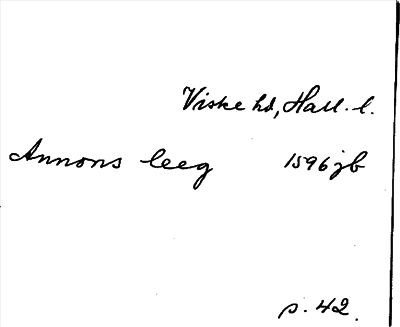 Viske hd, Hall. l.
Annons leeg 1596 jb
s. 42.